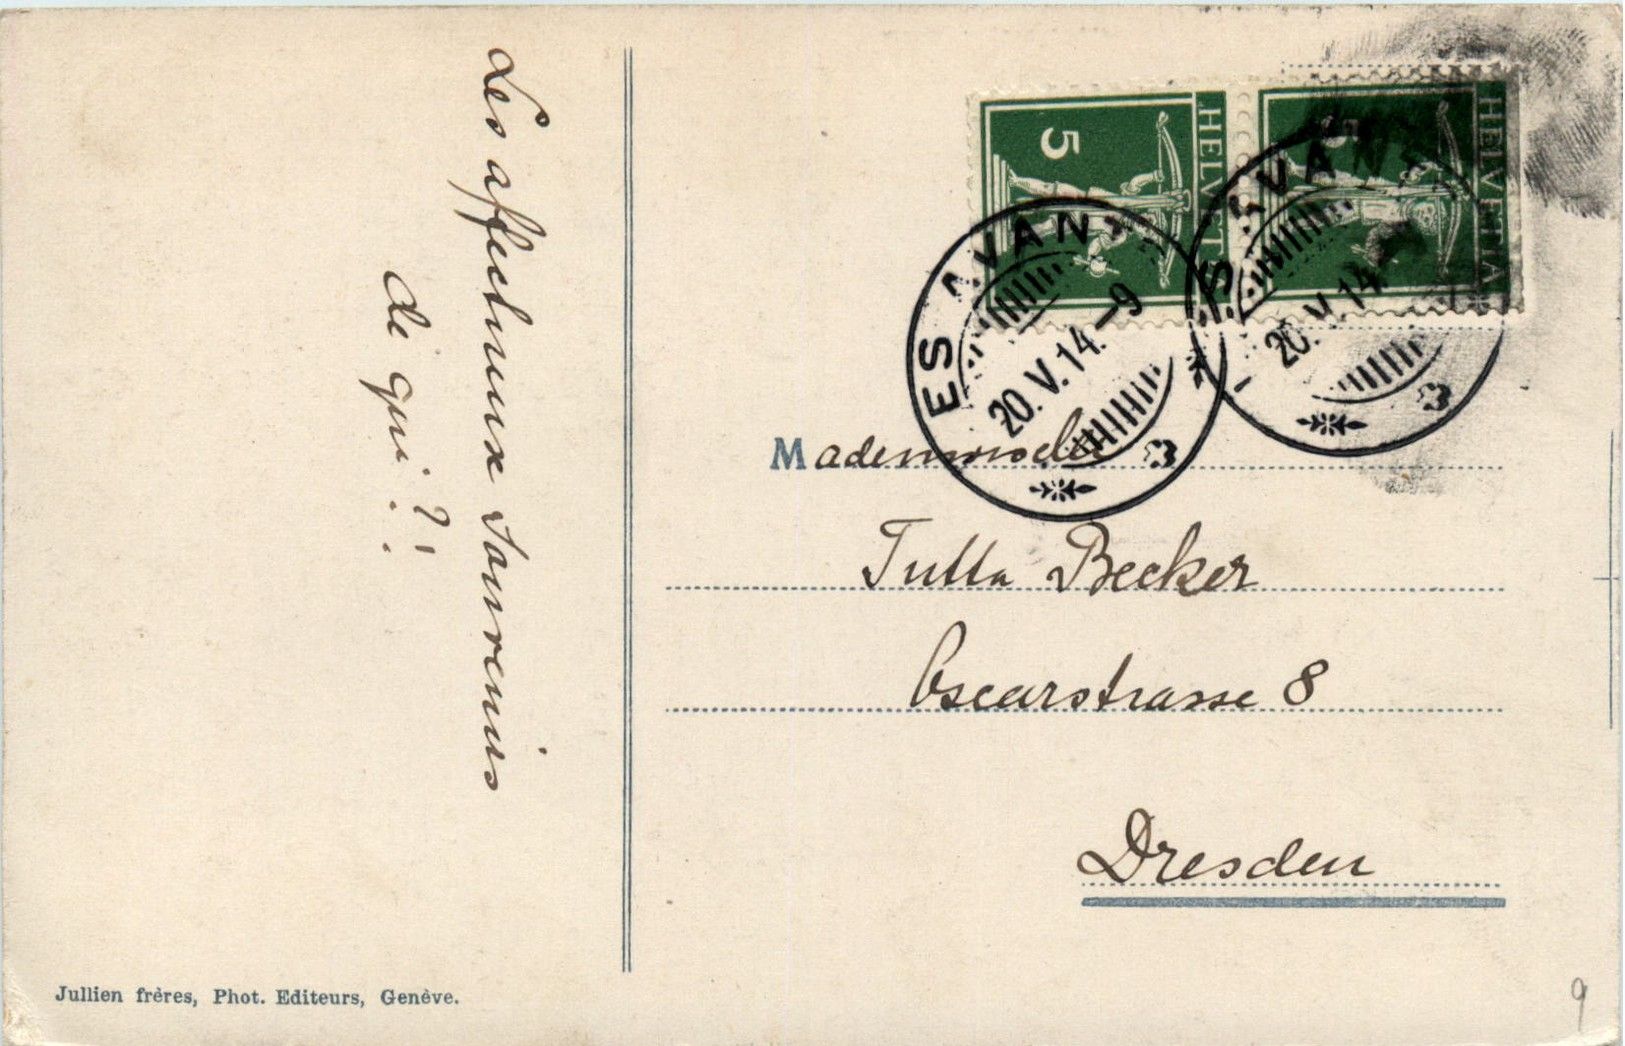 Les affectueux Souvenirs
de qui ?!
HELVETIA
5
HELVETIA
5
ES AVANTS
20. V. 14. –9
S AVANTS
20. V. 14.
Mademoiselle
Jutta Becker
Oscarstrasse 8
Dresden
Jullien frères, Phot. Editeurs, Genève.
9